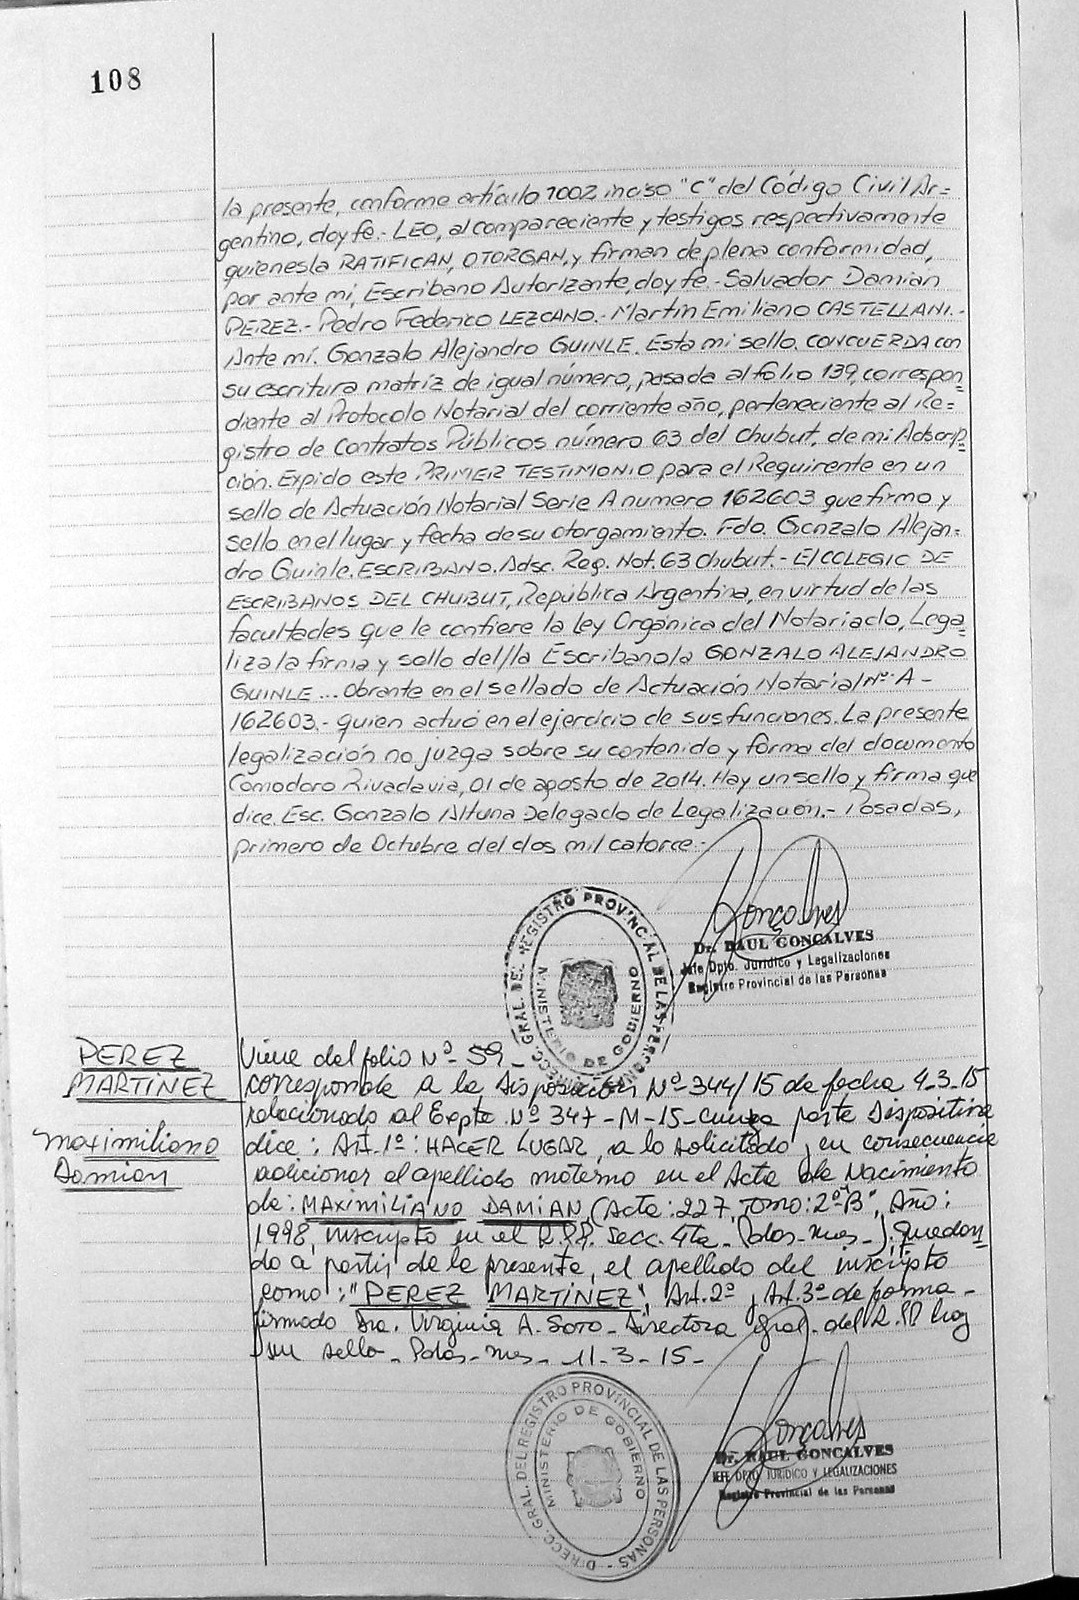 108
la presente, conforme artículo 1002 inciso "C" del Código Civil Ar=
gentino, doy fe.- LEO, al compareciente y testigos respectivamente
quienes la RATIFICAN, OTORGAN, y firman de plena conformidad,
por ante mí, Escribano Autorizante, doy fe.- Salvador Damian
PEREZ.- Pedro Federico LEZCANO.- Martín Emiliano CASTELLANI.-
Ante mí. Gonzalo Alejandro GUINLE. Esta mi sello. CONCUERDA con
su escritura matriz de igual número, pasada al folio 139, correspon=
diente al Protocolo Notarial del corriente año, perteneciente al Re=
gistro de Contratos Públicos número 63 del Chubut, de mi Adscrip=
ción. Expido este PRIMER TESTIMONIO para el Requirente en un
sello de Actuación Notarial Serie A numero 162603 que firmo y
sello en el lugar y fecha de su otorgamiento. Fdo. Gonzalo Alejan=
dro Guinle. ESCRIBANO. Adsc. Reg. Not. 63 Chubut.- El COLEGIO DE
ESCRIBANOS DEL CHUBUT, República Argentina, en virtud de las
facultades que le confiere la Ley Orgánica del Notariado, Lega=
liza la firma y sello del/la Escribano/a GONZALO ALEJANDRO
GUINLE... Obrante en el sellado de Actuación Notarial Nº A-
162603.- quien actuó en el ejercicio de sus funciones. La presente
legalización no juzga sobre su contenido y forma del documento
Comodoro Rivadavia, 01 de agosto de 2014. Hay un sello y firma que
dice. Esc. Gonzalo Altuna Delegado de Legalización.- Posadas,
primero de Octubre del dos mil catorce.-
DIRECC. GRAL. DEL REGISTRO PROVINCIAL DE LAS PERSONAS
MINISTERIO DE GOBIERNO
Gonçalves
Dr. RAUL GONCALVES
Jefe Dpto. Jurídico y Legalizaciones
Registro Provincial de las Personas
PEREZ
MARTINEZ
Maximiliano
Damian
Viene del folio Nº- 59-
corresponde a la Disposición Nº-344/15 de fecha 4-3-15
relacionado al Expte. Nº 347-M-15-cuya parte Dispositiva
dice: Art. 1º: HACER LUGAR, a lo solicitado, en consecuencia
adicionar el apellido materno en el Acta de Nacimiento
de: MAXIMILIANO DAMIAN, (Acta: 227, Tomo: 2º-"B", Año:
1998, inscripto en el R.P.P. secc. 4ta- Pdas-mes-); quedan=
do a partir de la presente, el apellido del inscripto
como: "PEREZ MARTINEZ", Art. 2º, Art. 3º de forma-
firmado Dra. Virginia A. Soto- Directora Gral. del R.PP hay
un sello- Pdas-mes- 11-3-15-
DIRECC. GRAL. DEL REGISTRO PROVINCIAL DE LAS PERSONAS
MINISTERIO DE GOBIERNO
Gonçalves
Dr. RAUL GONCALVES
JEFE DPTO. JURIDICO Y LEGALIZACIONES
Registro Provincial de las Personas